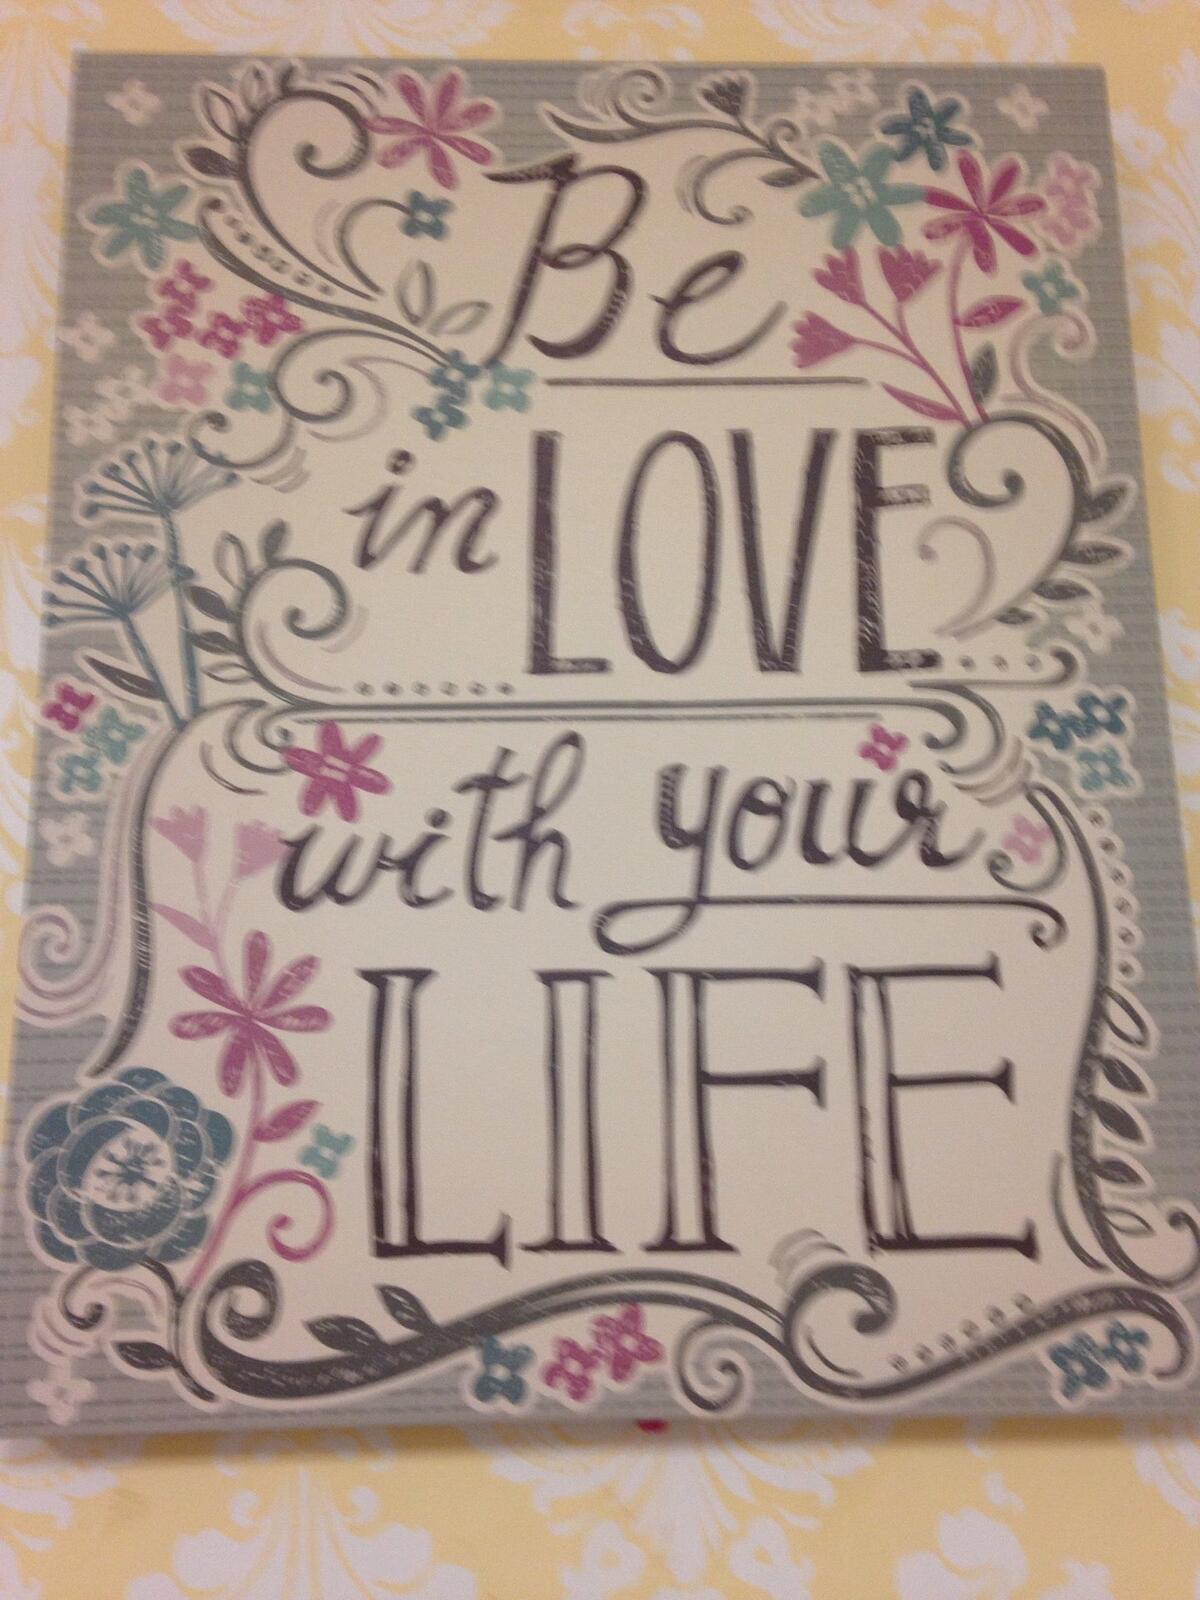 Be
in LOVE
with your
LIFE